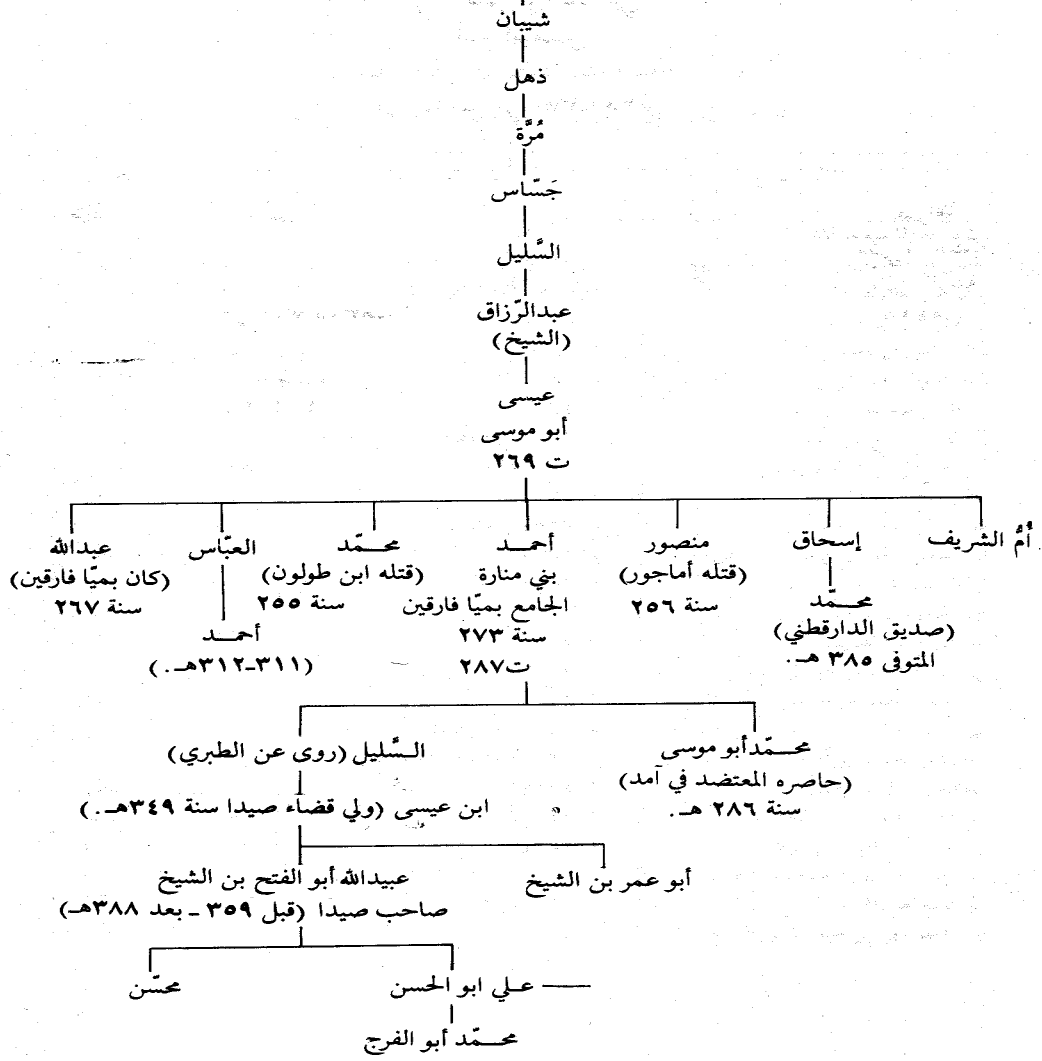 شيبان
ذهل
مُرَّة
جَسّاس
السَّليل
عبدالرّزاق
(الشيخ)
عيسى
أبو موسى
ت ٢٦٩
أُمُّ الشريف
إسحاق
محمّد
(صديق الدارقطني)
المتوفى ٣٨٥ هـ.
منصور
(قتله أماجور)
سنة ٢٥٦
أحمد
بني منارة
الجامع بميّا فارقين
سنة ٢٧٣
ت٢٨٧
محمّد
(قتله ابن طولون)
سنة ٢٥٥
العبّاس
أحمد
(٣١١-٣١٢هـ.)
عبدالله
(كان بميّا فارقين)
سنة ٢٦٧
محمّد أبو موسى
(حاصره المعتضد في آمد)
سنة ٢٨٦ هـ.
السَّليل (روى عن الطبري)
ابن عيسى (ولي قضاء صيدا سنة ٣٤٩هـ.)
أبو عمر بن الشيخ
عبيدالله أبو الفتح بن الشيخ
صاحب صيدا (قبل ٣٥٩ - بعد ٣٨٨هـ)
علي ابو الحسن
محسّن
محمّد أبو الفرج